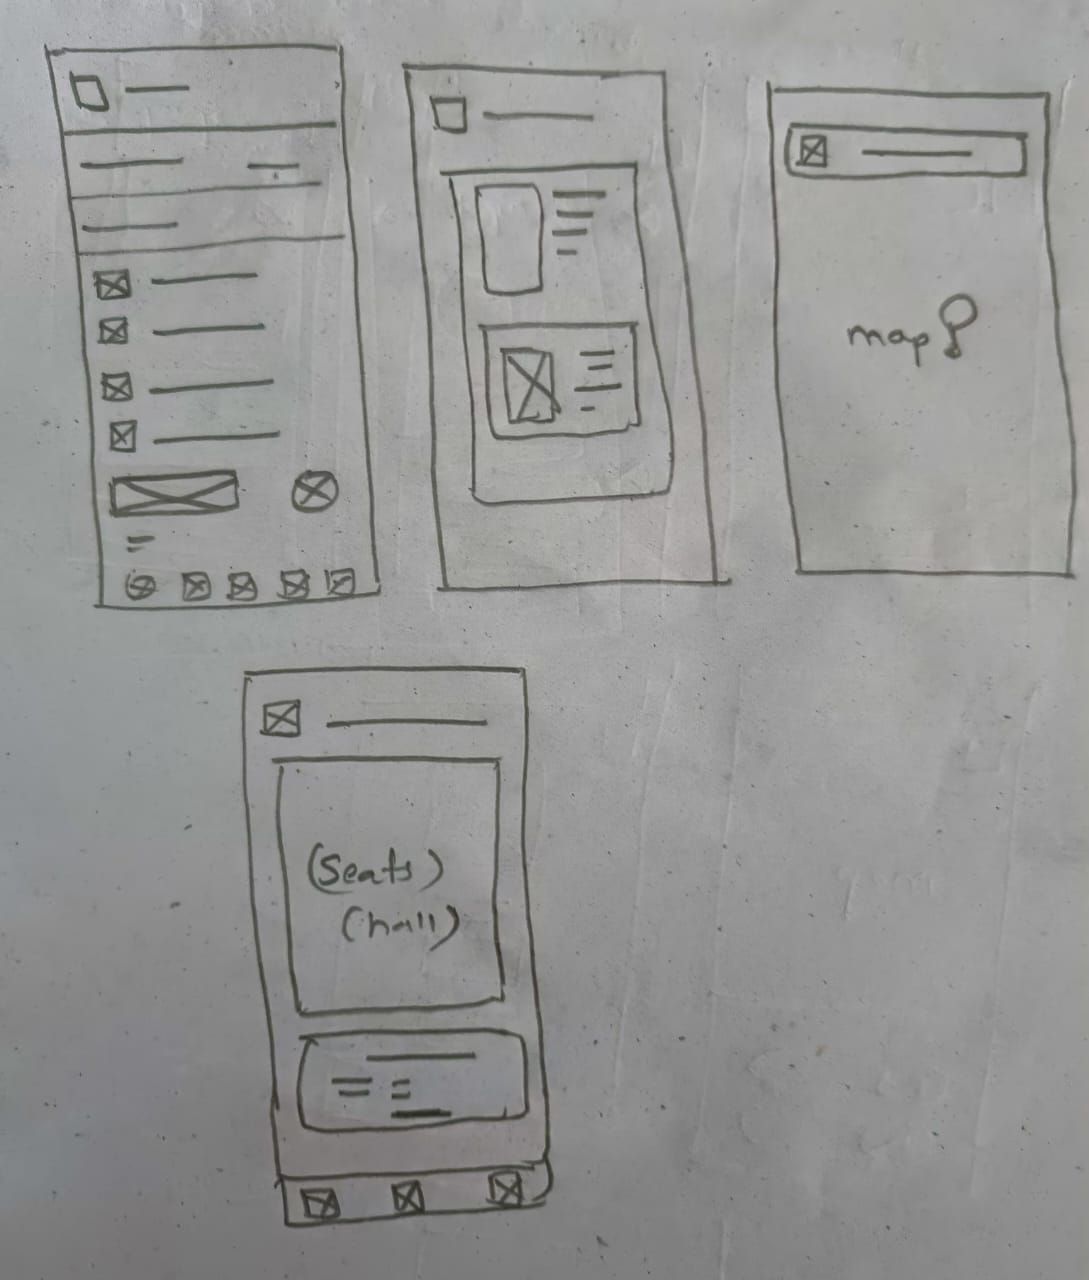 map
(Seats)
(hall)